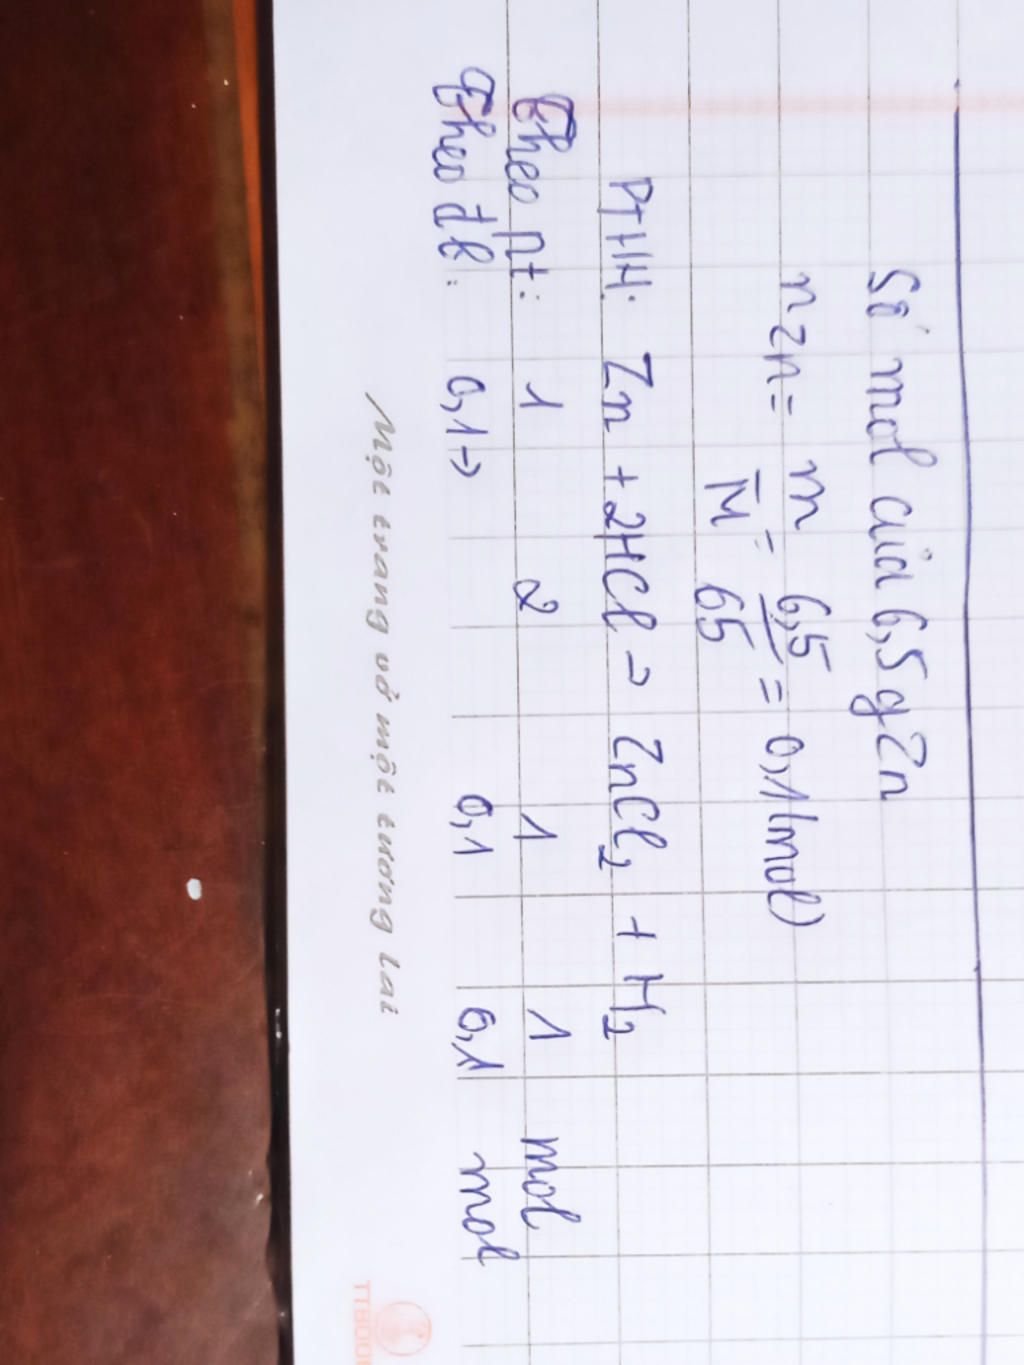 Số mol của 6,5g Zn
nZn = m/M = 6,5/65 = 0,1 (mol)
PTHH: Zn + 2HCl → ZnCl₂ + H₂
Theo pt: 1 2 1 1 mol
Theo đb: 0,1→ 0,1 0,1 mol
Một trang vở một tương lai